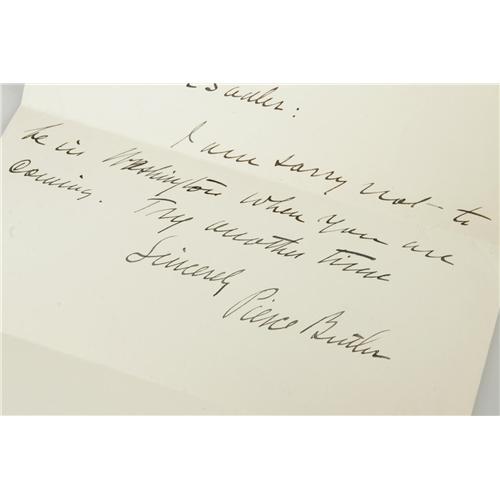 Sadler:
I am sorry not to
be in Washington when you are
coming. Try another time
Sincerely
Pierce Butler